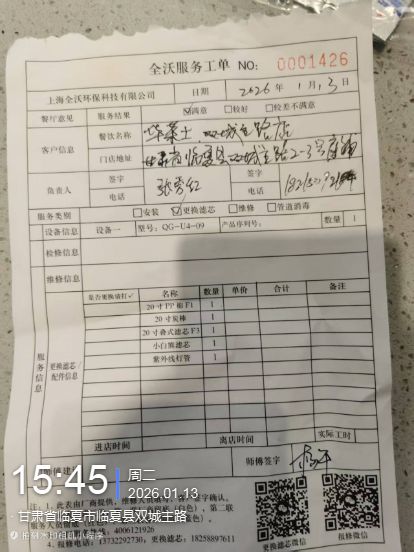 全沃服务工单 NO: 0001426
上海全沃环保科技有限公司 日期 2026年1月13日
餐厅意见 服务结果 ☑满意 □较好 □较差不满意
客户信息 餐饮名称 华莱士 双城主路店
门店地址 甘肃省临夏县双城主路2-3号商铺
负责人 签字 签字
电话 电话
服务类别 □安装 ☑更换滤芯 □维修 □管道消毒
设备信息 设备一 型号: QG-U4-09 产品序列号: 数量 1
检修信息
维修信息
服务信息 更换滤芯/配件信息
是否更换请打✓ 名称 数量 单价 合计 备注
20寸PP棉F1 1
20寸炭棒 1
20寸叠式滤芯F3 1
小白熊滤芯 1
紫外线灯管 1
进店时间 离店时间 实际工时
师傅签字
15:45 周二
2026.01.13
甘肃省临夏市临夏县双城主路
4006121926
4. 报修电话: 13732292730, 18258897611
更换滤芯微信 报修微信